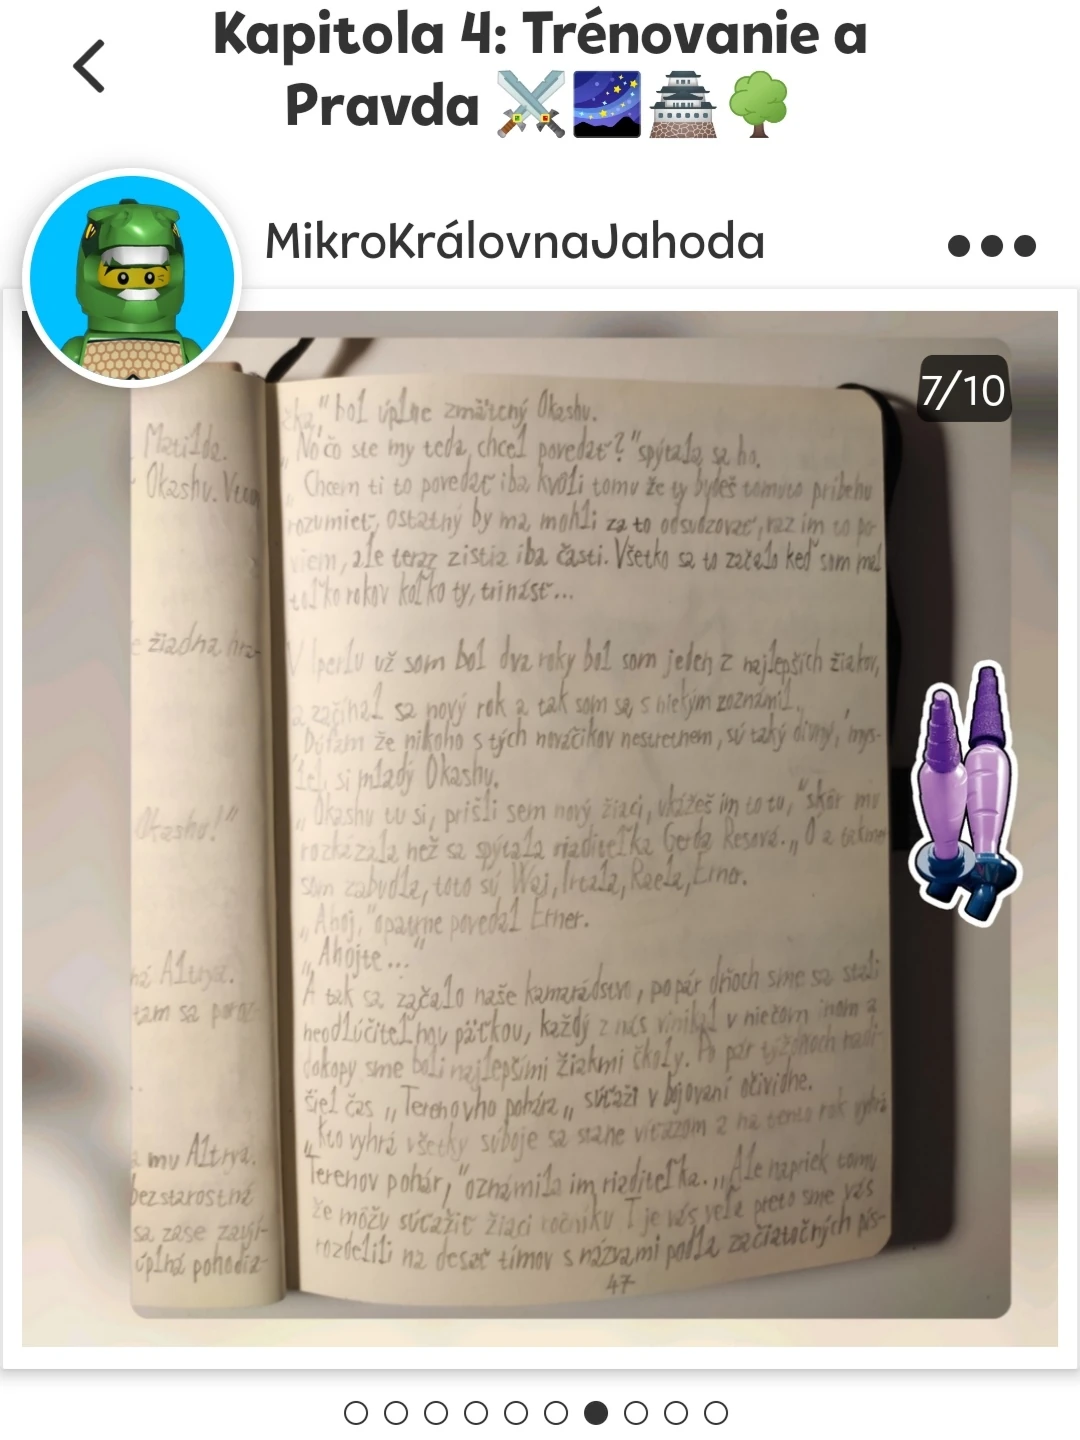 Kapitola 4: Trénovanie a
Pravda
MikroKrálovnaJahoda
7/10
Matilda.
Okashu.
žiadna hra-
Okashu!"
Altrya.
tam sa
mu Altrya.
bezstarostné
sa zase
úplná pohodia-
bol úplne zmätený Okashu.
„No čo ste my teda chcel povedať?" spýtala sa ho.
„Chcem ti to povedať iba kvôli tomu že ty budeš tomuto príbehu
rozumieť, ostatný by ma mohli za to odsudzovať, raz im to po-
viem, ale teraz zistia iba časti. Všetko sa to začalo keď som mal
toľko rokov koľko ty, trinásť...
V Iperlu už som bol dva roky bol som jeden z najlepších žiakov,
a začínal sa nový rok a tak som sa s niekým zoznámil.
Dúfam že nikoho s tých nováčikov nestretnem, sú taký divný, mys-
lel si mladý Okashu.
„Okashu tu si, prišli sem nový žiaci, ukážeš im to tu," skôr mu
rozkázala než sa spýtala riaditeľka Gerda Resová. „O a takmer
som zabudla, toto sú Waj, Irtala, Raela, Erner.
„Ahoj," opatrne povedal Erner.
„Ahojte..."
A tak sa začalo naše kamarádstvo, po pár dňoch sme sa stali
neodlúčiteľnou päťkou, každý z nás vinikal v niečom inom a
dokopy sme boli najlepšími žiakmi školy. Po pár týždňoch nadi-
šiel čas „Terenovho pohára„ súťaži v bojovaní očividne.
„Kto vyhrá všetky súboje sa stane víťazom a na tento rok vyhrá
Terenov pohár," oznámila im riaditeľka. „Ale napriek tomu
že môžu súťažiť žiaci ročníku T je vás veľa preto sme vás
rozdelili na desať tímov s názvami podľa začiatočných pís-
47